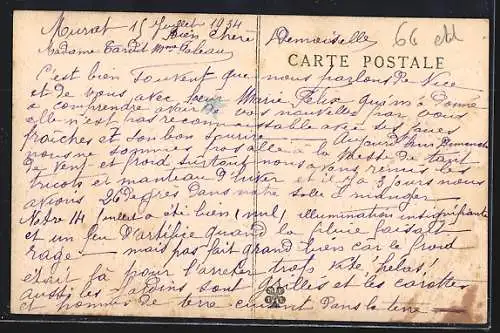 Murat 15 Juillet 1934
66
Bien Chère Demoiselle
Madame Tardit Mme
CARTE POSTALE
C'est bien souvent que nous parlons de Nice
et de vous avec Soeur Marie Félix qui m'a donné
a comprendre avoir de vos nouvelles par vous
elle n'est pas reconnaissable avec ses joues
fraîches et son bon sourire Aujourd'hui Dimanche
nous ne sommes pas allé a la Messe de tant
de vent et froid surtout nous avons remis les
tricots et manteau d'hiver et il y a 3 jours nous
avions 26 degrés dans notre salle a manger
Notre 14 Juillet a été bien (nul) illumination insignifiante
et un feu d'artifice quand la pluie faisait
rage — mais pas fait grand bien car le froid
était là pour l'arreter trop vite hélas!
aussi les jardins sont grillés et les carottes
et pommes de terre cuisent dans la terre —